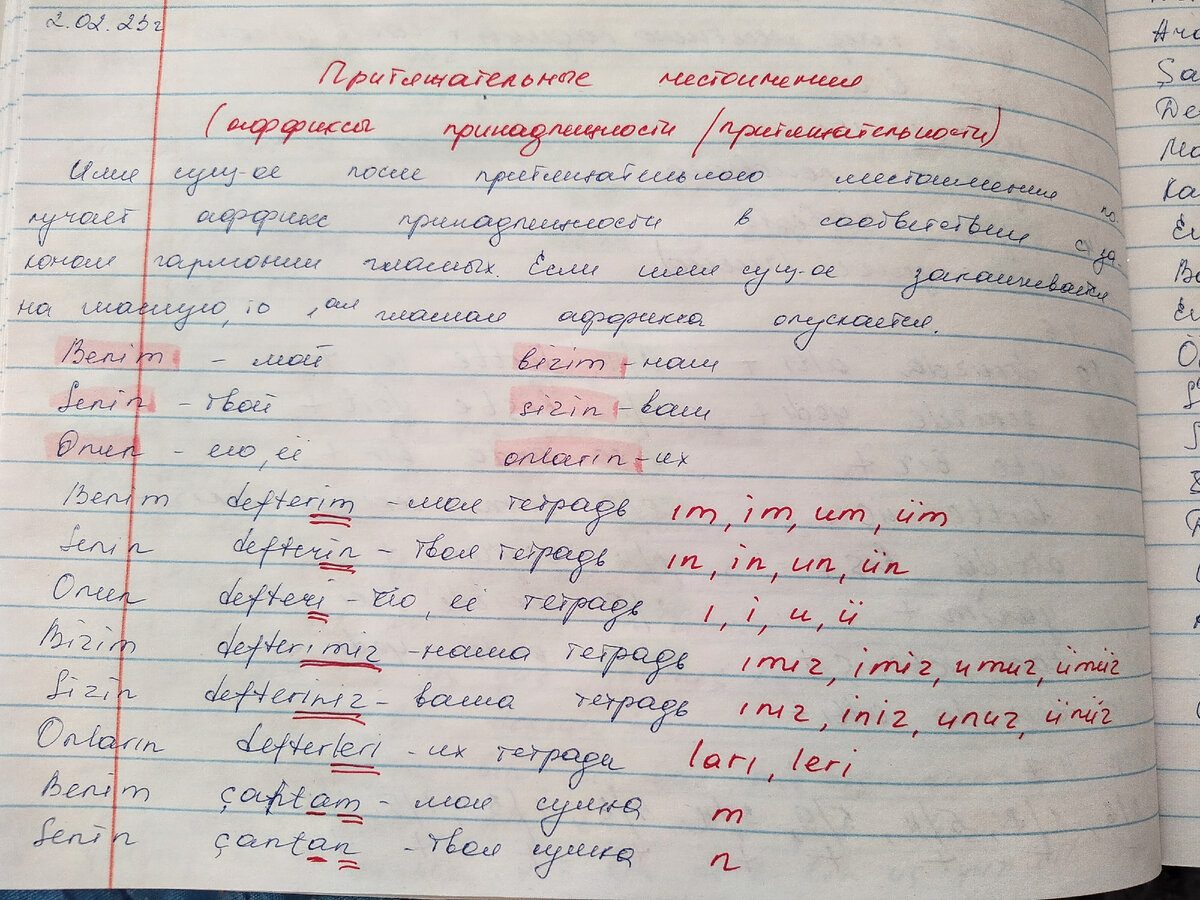 2.02.23г
Притяжательные местоимения
(аффиксы принадлежности / притяжательности)
Имя сущ-ое после притяжательного местоимения по-
лучает аффикс принадлежности в соответствии с за-
коном гармонии гласных. Если имя сущ-ое заканчивается
на гласную, то 1ая гласная аффикса опускается.
Benim - мой bizim - наш
Senin - твой sizin - ваш
Onun - его, её onların - их
Benim defterim - моя тетрадь ım, im, um, üm
Senin defterin - твоя тетрадь ın, in, un, ün
Onun defteri - его, её тетрадь ı, i, u, ü
Bizim defterimiz - наша тетрадь ımız, imiz, umuz, ümüz
Sizin defteriniz - ваша тетрадь ınız, iniz, unuz, ünüz
Onların defterleri - их тетради ları, leri
Benim çantam - моя сумка m
Senin çantan - твоя сумка n
Şa
De
Ka